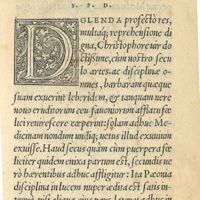 S. P. D.
DOLENDA profecto res,
multaq; reprehensione di
gna, Christophore uir do
ctissime, cum nostro secu
lo artes ac disciplinæ o-
mnes, barbaram quæque
suam exuerint leberidem, & tanquam uere
nouo eruditorum ceu fauoniorum afflatu fœ
lici reuirescere cœperint: solam adhuc Me-
dicinam nondum uindiq; uetus illud exuuium
exuisse. Haud secus quàm cum puerpera fœ
liciter quidem enixa partum est, secundis ue
rò hærentibus adhuc affligitur: Ita Pæonia
disciplina in lucem nuper ædita est satis in-